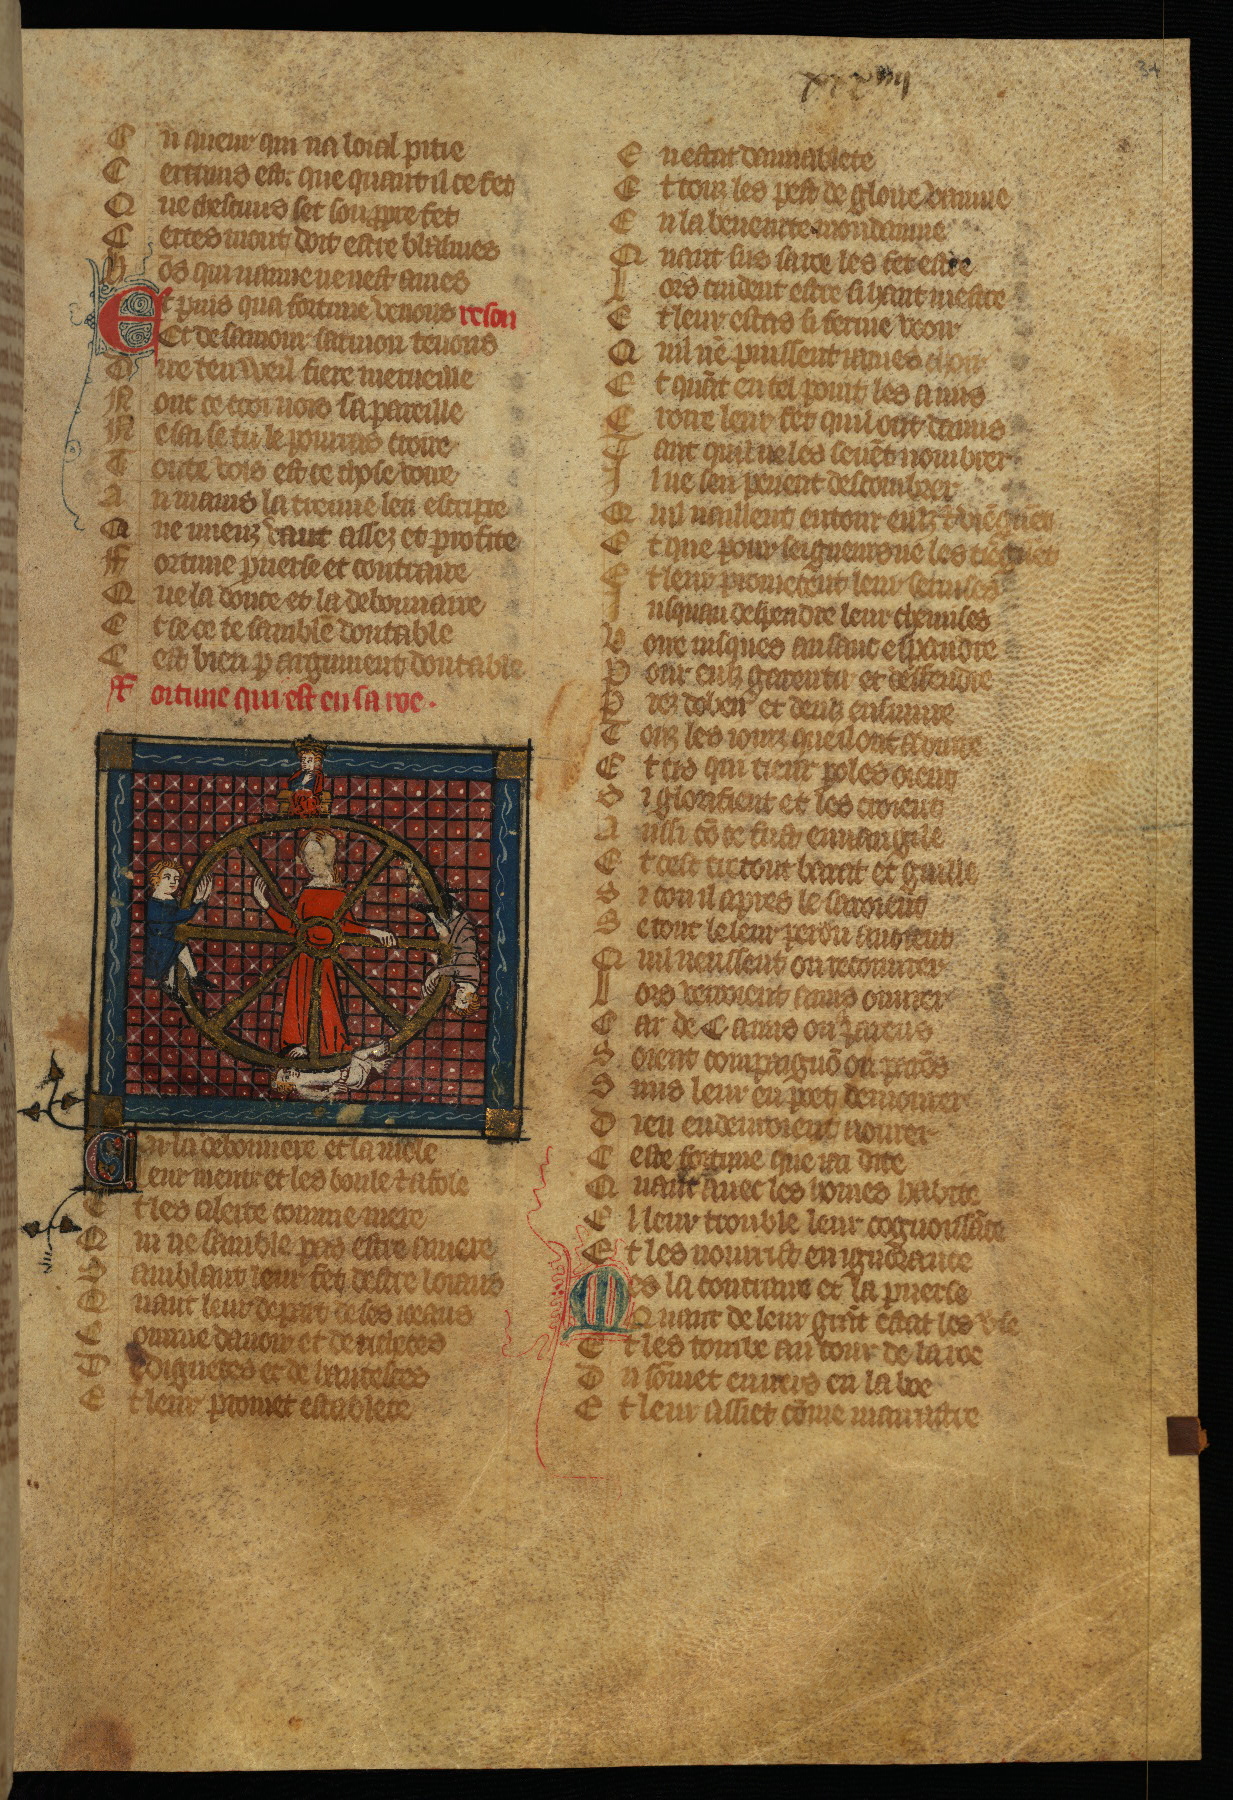 xxxiiij
34
E n queur qui na loial pitie
C ertains est. que quant il ce fet
Q ue chescuns set son ppre fet
C ertes mout doit estre blasmes
V os qui nanne ne nest ames
Et puis qua fortune venons reson
Et de samour sarmon tenons
D ire ten veil fiere merueille
N onc ce croi nois sa pareille
N e sai se tu le pourras croire
T oute vois est ce chose voire
A
Q ue mieuz vaut assez et profite
F ortune puerse et contraire
Q ue la douce et la debonnaire
E t se ce te samble doutable
C est bien p argument doutable
F ortune qui est en sa roe.
Q la debonnere et la mole
Leur ment et les boule et afole
E t les aleite comme mere
Q ui ne samble pas estre amere
S amblant leur fet destre loiaus
Q uant leur depart de ses ioiaus
C omme dauoir et de richeces
D e dignetes et de hauteces
E t leur promet establete
E n estat de muablete
E t touz les pest de gloire vainne
E n la beneurte mondainne
Q uant sus sa roe les fet estre
L ors cuident estre si hant mestre
E t leur estas si ferme veoir
Q uil ne puissent iames choir
E t quat en tel point les a mis
C roire leur fet quil ont damis
T ant quil ne les seuent nombrer
I l ne sen peuent descombrer
Q uil naillent entour eulz et viegnent
E t que pour seigneurs ne les tiegnent
E t leur prometent leur seruises
I usquau despendre leur chemises
V oire iusques au sanc espandre
P our eulz garentir et deffendre
P rez dobeir et deulz ensuiure
T ouz les iourz que il ont a viure
E t cis qui tieur poles oient
S i glorifient et les croient
A ussi co ce fust euuangile
E t cest tretout barat et guille
S i con il apres le saroient
S e tout le leur perdu auoient
Q uil neussent ou recouurer
L ors verroient amis ouurer
C ar de C amis ou parens
S oient compaignon ou parens
S uns leur en poet demourer
D ieu en deuroient aourer
C este fortune que iai dite
Q uant auec les homes habite
E l leur trouble leur cognoissace
E t les nourrist en ignorance
Mes la contraire et la puerse
Quant de leur grat estat les vse
E t les tombe au tour de la roe
D u somet enuers en la boe
E t leur assiet come marrastre